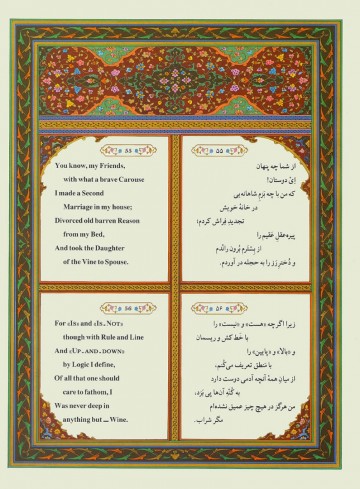 55
You know, my Friends,
with what a brave Carouse
I made a Second
Marriage in my house;
Divorced old barren Reason
from my Bed,
And took the Daughter
of the Vine to Spouse.
۵۵
از شما چه پنهان
اِیْ دوستان!
که من با چه بَزمِ شاهانه‌یی
در خانهٔ خویش
تجدیدِ فِراش کردم؛
پیره‌عقلِ عَقیم را
از بِسْترم بُرون راندم
و دُخترِ رَز را به حجله در آوردم.
56
For «IS» and «IS, NOT»
though with Rule and Line
And «UP, AND, DOWN»
by Logic I define,
Of all that one should
care to fathom, I
Was never deep in
anything but ... Wine.
۵۶
زیرا اگرچه «هست» و «نیست» را
با خَط‌کش و ریسمان
و «بالا» و «پایین» را
با مَنطق تعریف می‌کُنم،
از میانِ همهٔ آنچه آدمی دوست دارد
به کُنْهِ آن‌ها پی بَرَد،
من هرگز در هیچ چیز عمیق نشده‌ام
مگر شراب.